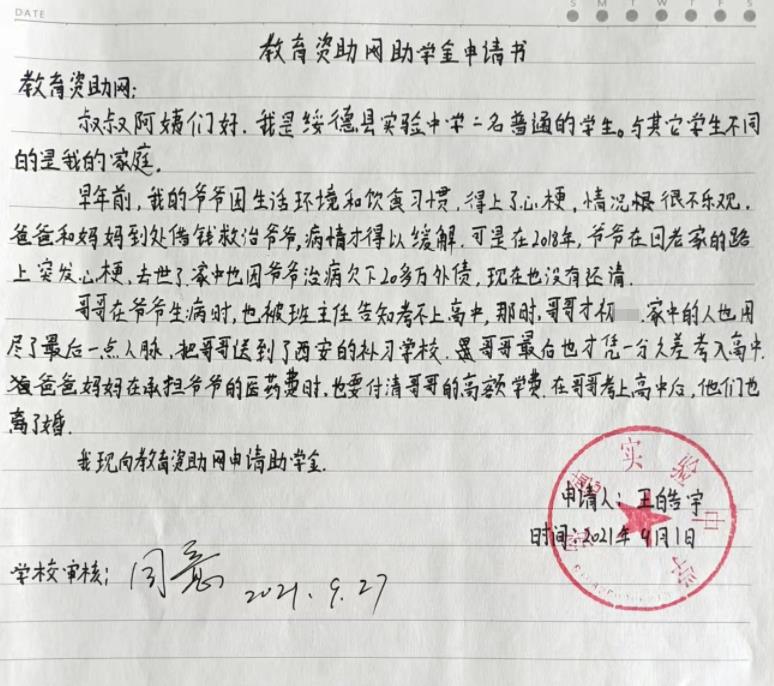 DATE
S M T W T F S
教育资助网助学金申请书
教育资助网:
叔叔阿姨们好.我是绥德县实验中学二名普通的学生。与其它学生不同
的是我的家庭.
早年前,我的爷爷因生活环境和饮食习惯,得上了心梗,情况很不乐观.
爸爸和妈妈到处借钱救治爷爷,病情才得以缓解.可是在2018年,爷爷在回老家的路
上突发心梗,去世了.家中也因爷爷治病欠下20多万外债,现在也没有还清.
哥哥在爷爷生病时,也被班主任告知考不上高中,那时,哥哥才初 .家中的人也用
尽了最后一点人脉,把哥哥送到了西安的补习学校.哥哥最后也才凭一分之差考入高中.
爸爸妈妈在承担爷爷的医药费时,也要付清哥哥的高额学费.在哥哥考上高中后,他们也
离了婚.
我现向教育资助网申请助学金.
申请人:王皓宇
时间:2021年9月1日
学校审核:同意 2021.9.27
实验中学